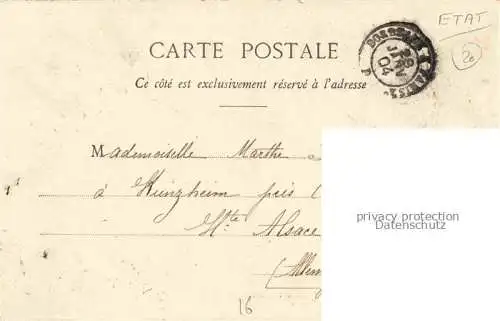 ETAT
20
CARTE POSTALE
Ce côté est exclusivement réservé à l'adresse
28
JANV
04
Mademoiselle Marthe
à Kungheim près
Hte Alsace
(Allem
privacy protection
Datenschutz
16